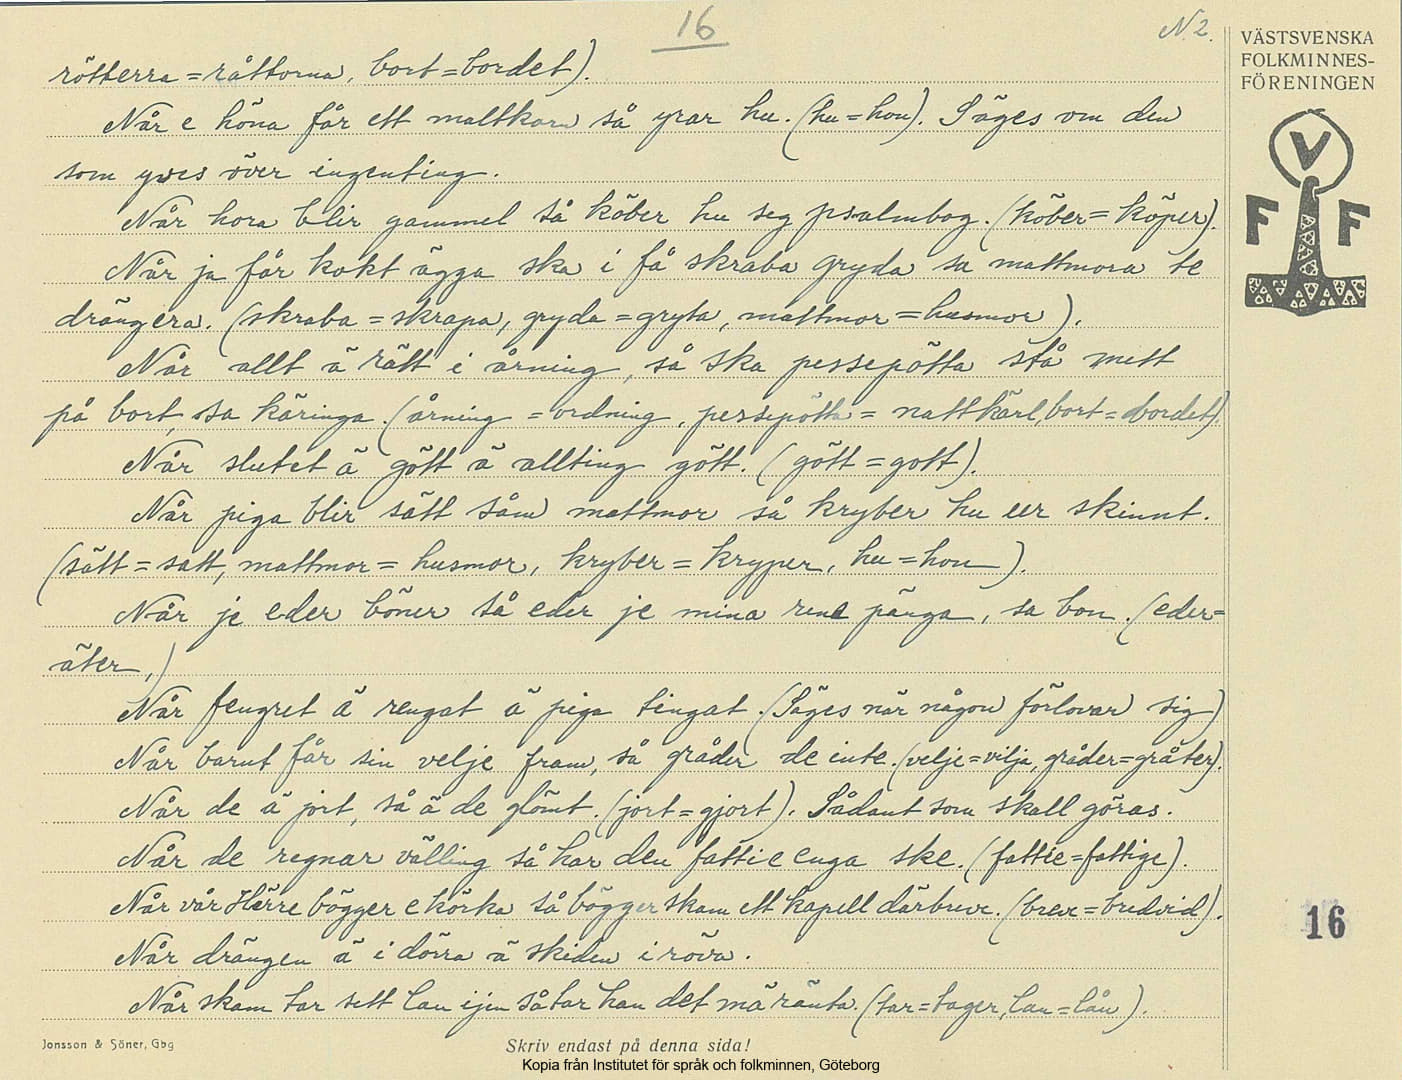 16
N 2.
VÄSTSVENSKA
FOLKMINNES-
FÖRENINGEN
V
F F
rötterra = råttorna, bort = bordet).
Når e höna får ett maltkorn så yrar hu. (hu = hon). Säges om den
som yves över ingenting.
Når hora blir gammel så köber hu seg psalmbog. (köber = köper).
Når ja får kokt ägga ska i få skraba gryda sa mattmora te
drängera. (skraba = skrapa, gryda = gryta, mattmor = husmor).
Når allt ä rätt i årning, så ska pessepötta stå mett
på bort, sa käringa. (årning = ordning, pessepötta = nattkärl, bort = bordet).
Når slutet ä gött ä allting gött. (gött = gott).
Når piga blir sätt såm mattmor så kryber hu ur skinnt.
(sätt = satt, mattmor = husmor, kryber = kryper, hu = hon).
Når je eder böner så eder je mina rene pänga, sa bon. (eder =
äter,)
Når fengret ä rengat ä piga tingat. (Säges när någon förlovar sig)
Når barnt får sin velje fram, så gråder de inte. (velje = vilja, gråder = gråter).
Når de ä jort, så ä de glömt. (jort = gjort). Sådant som skall göras.
Når de regnar välling så har den fattie enga ske. (fattie = fattige).
Når vår Herre bögger e körka så bögger skam ett kapell därbreve. (breve = bredvid).
Når drängen ä i dörra ä skiden i röva.
Når skam tar sett lan ijen så tar han det mä ränta. (tar = tager, lan = lån).
16
Jonsson & Söner, Gbg
Skriv endast på denna sida!
Kopia från Institutet för språk och folkminnen, Göteborg